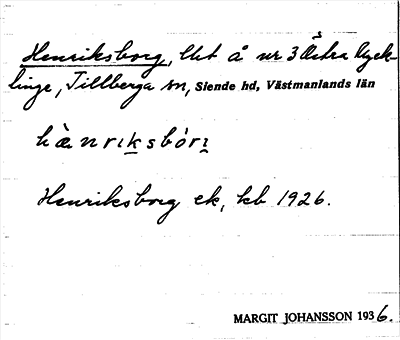 Henriksborg, lht å nr 3 Östra Lyck-
linge, Tillberga sn, Siende hd, Västmanlands län
hὰnrιksbórι
Henriksborg ek, kb 1926.
MARGIT JOHANSSON 1936.